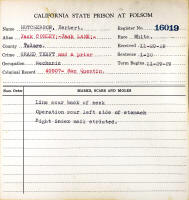 CALIFORNIA STATE PRISON AT FOLSOM
Name HUTCHERSON, Herbert. Register No. 16019
Alias Jack CONLEY,-Jack LANE, Race White.
County Tulare. Received 11-20-29
Crime GRAND THEFT and a prior Sentence 1-10
Occupation Mechanic Term Begins 11-20-29
Criminal Record San Quentin.
MARKS, SCARS AND MOLES
Line scar back of neck
Operation scar left side of stomach
Right index nail striated.